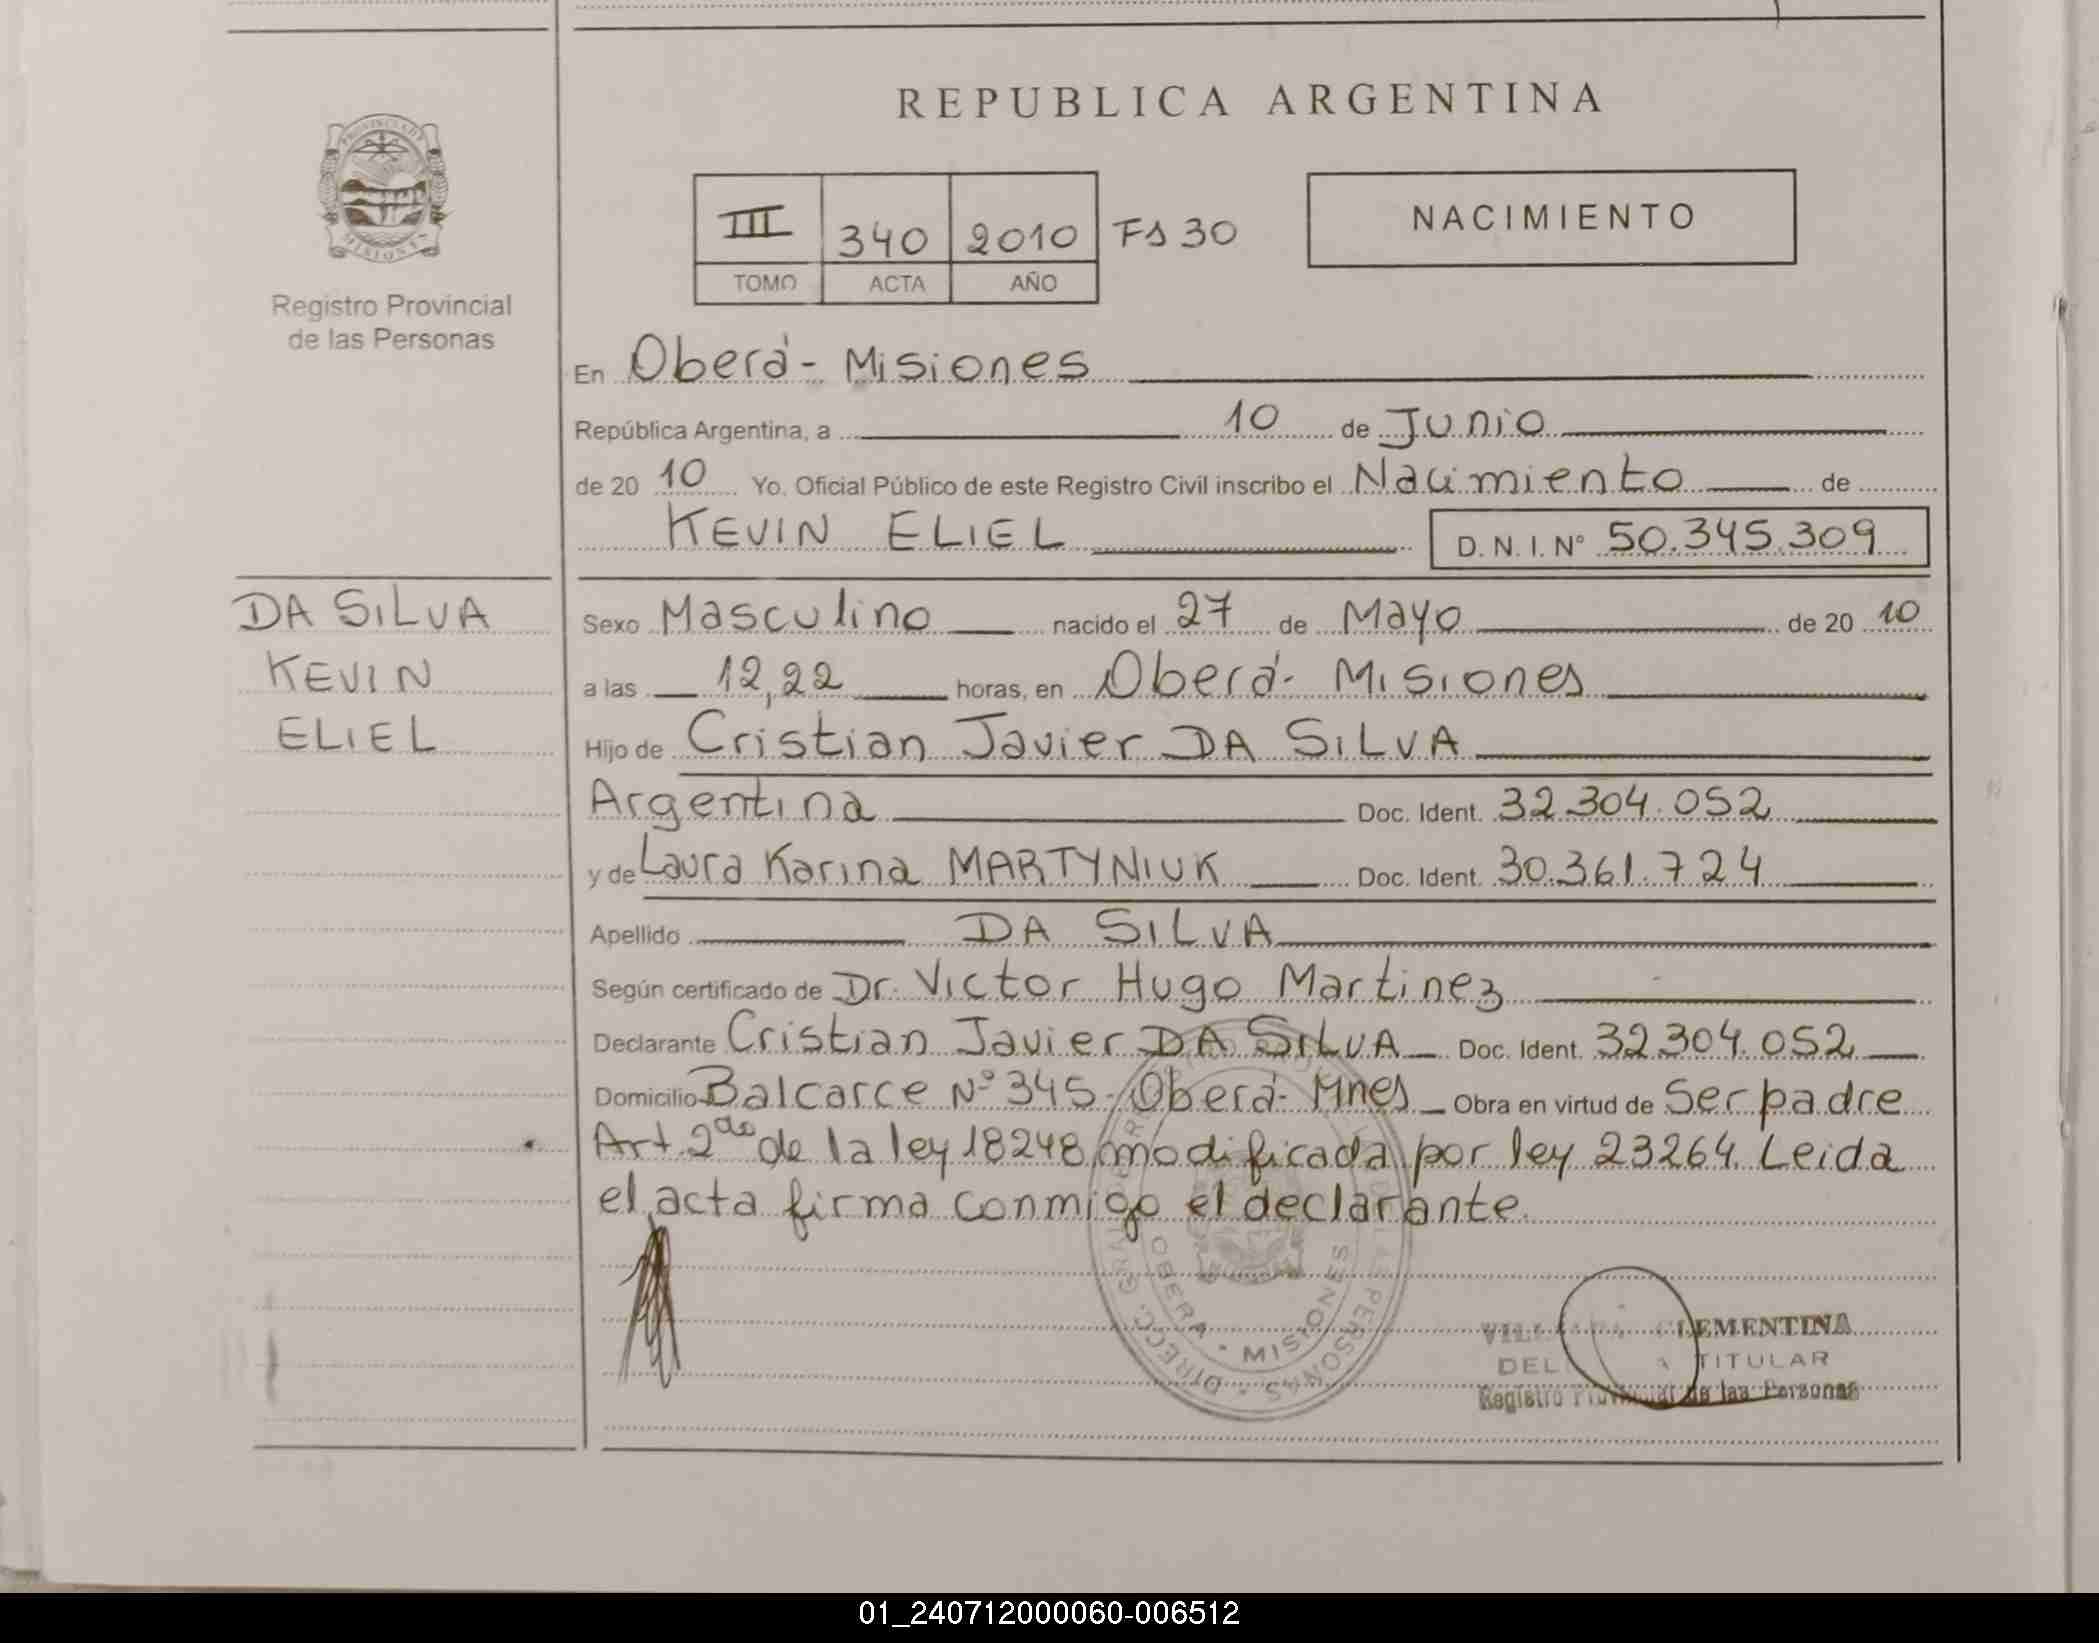 REPUBLICA ARGENTINA
PROVINCIA DE MISIONES
Registro Provincial
de las Personas
III 340 2010 Fs 30
TOMO ACTA AÑO
NACIMIENTO
En Oberá - Misiones
República Argentina, a 10 de Junio
de 20 10 Yo, Oficial Público de este Registro Civil inscribo el Nacimiento de
KEVIN ELIEL D. N. I. N° 50.345.309
DA SILVA
KEVIN
ELIEL
Sexo Masculino nacido el 27 de Mayo de 20 10
a las 12,22 horas, en Oberá - Misiones
Hijo de Cristian Javier DA SILVA
Argentina Doc. Ident. 32.304.052
y de Laura Karina MARTYNIUK Doc. Ident. 30.361.724
Apellido DA SILVA
Según certificado de Dr. Victor Hugo Martinez
Declarante Cristian Javier DA SILVA Doc. Ident. 32.304.052
Domicilio Balcarce N° 345 - Oberá - Mnes Obra en virtud de Ser padre
Art. 2do de la ley 18248 modificada por ley 23264. Leida
el acta firma conmigo el declarante.
OBERA - MISIONES
CLEMENTINA
DEL TITULAR
Registro Provincial de las Personas
01_240712000060-006512